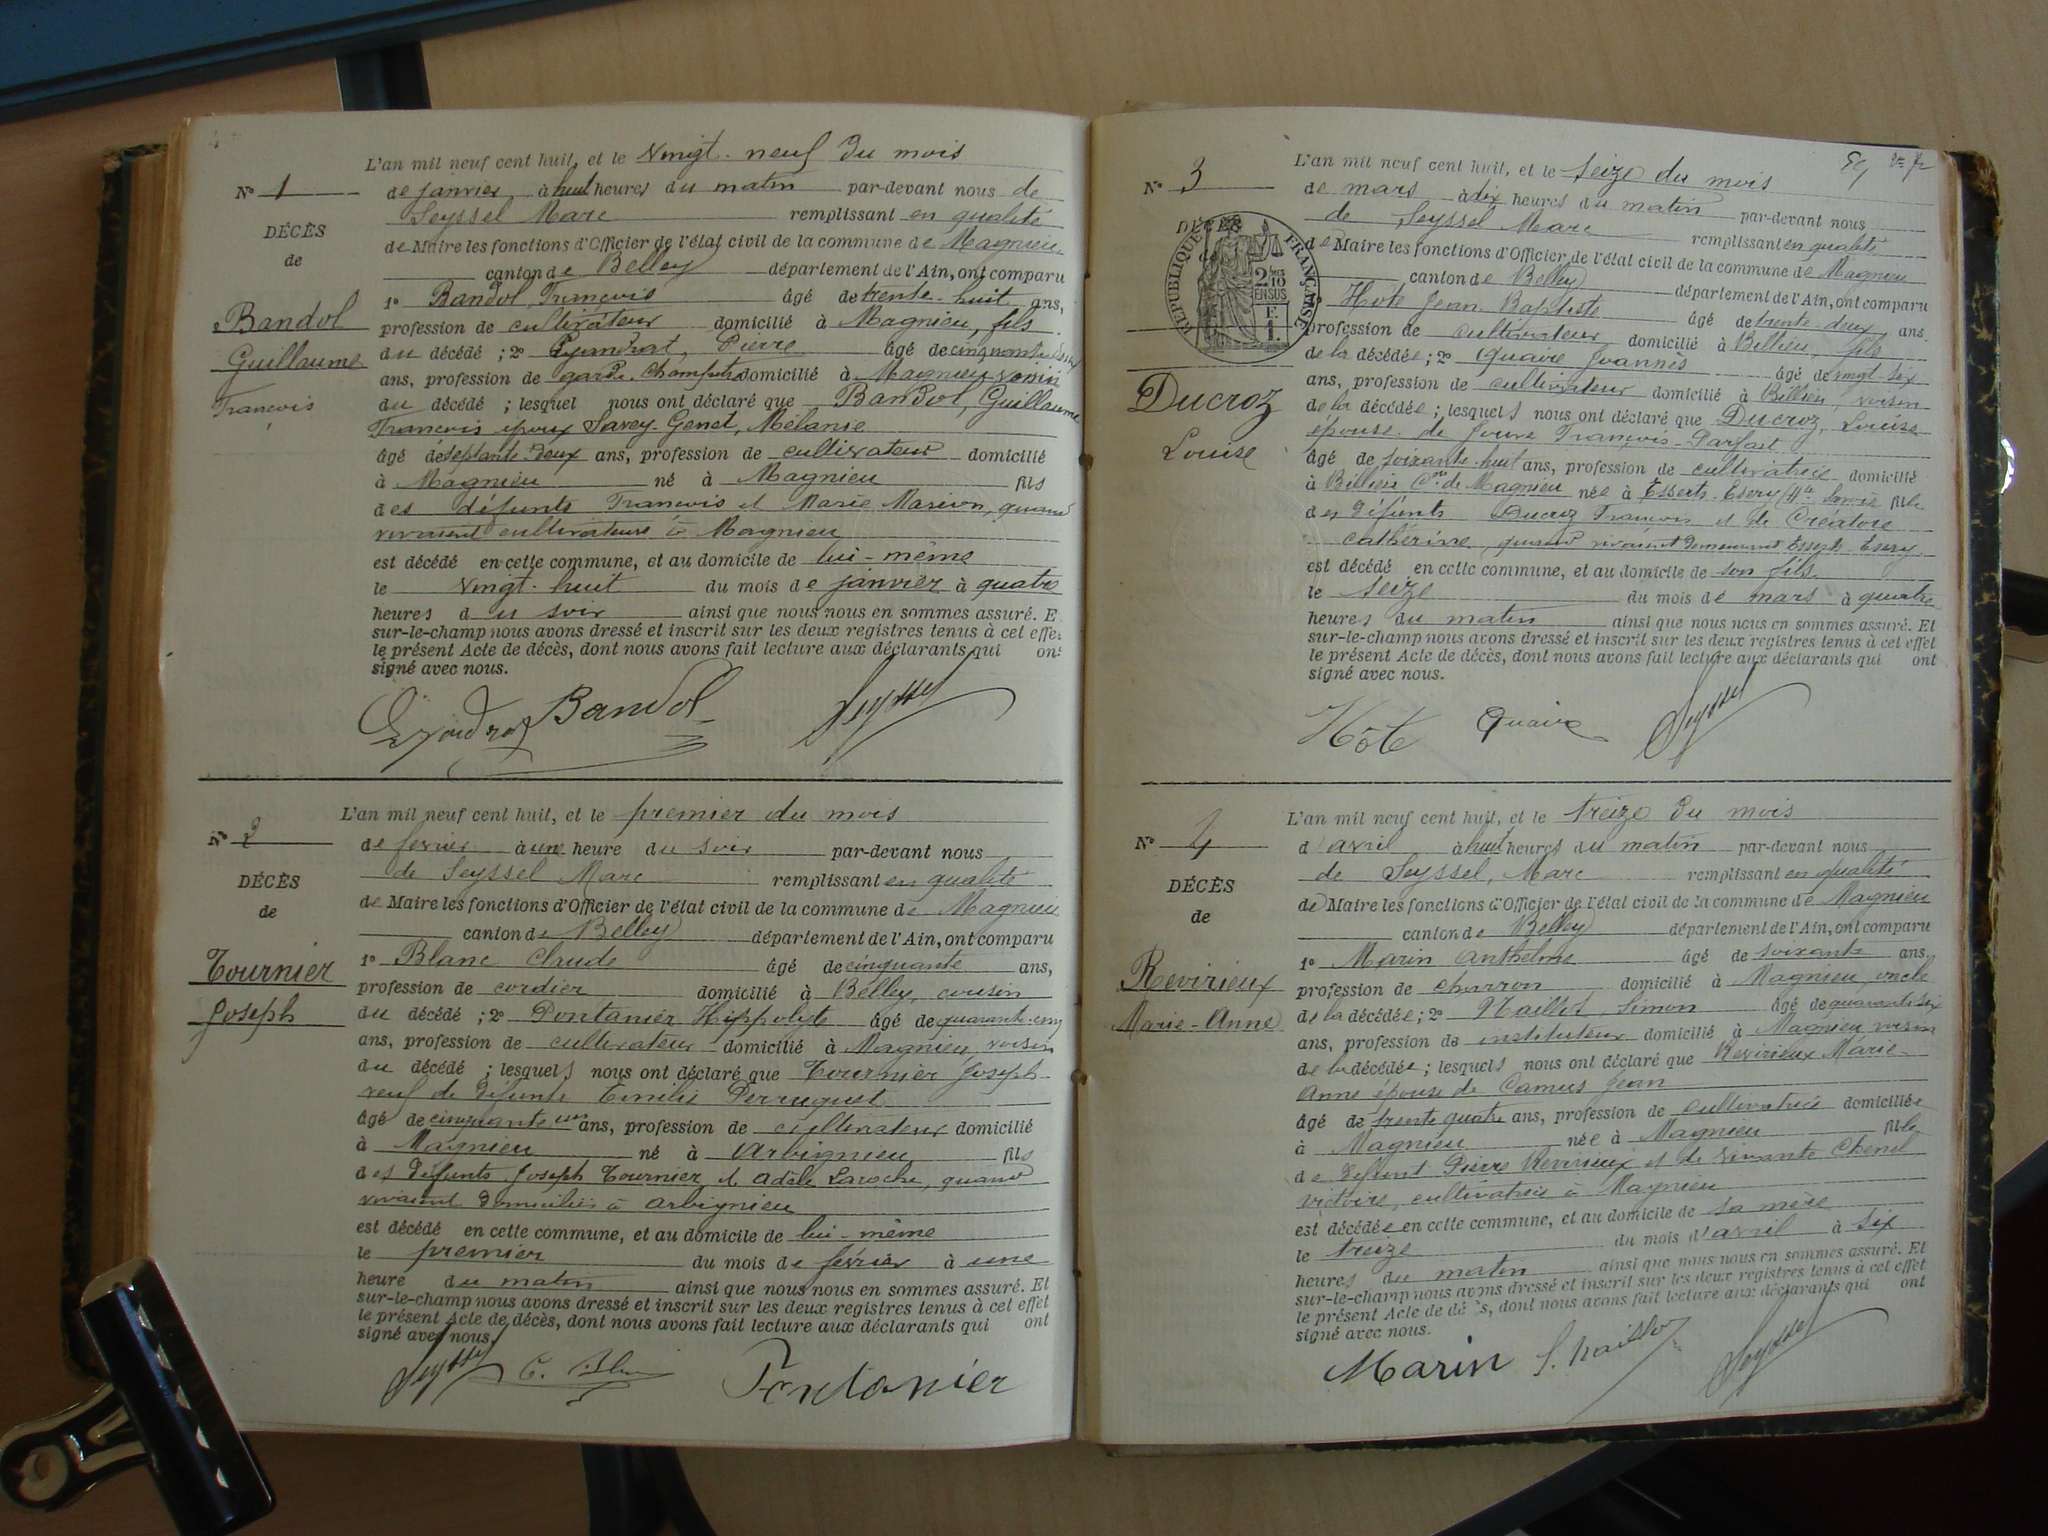 L'an mil neuf cent huit, et le vingt-neuf du mois
N° 1
de janvier à huit heures du matin par-devant nous de
Seyssel Marc remplissant en qualité
DÉCÈS
de Maire les fonctions d'Officier de l'état civil de la commune de Magnieu
de
canton de Belley département de l'Ain, ont comparu
1° Bandol François âgé de trente-huit ans,
Bandol
profession de cultivateur domicilié à Magnieu, fils
Guillaume
du décédé ; 2° Pierre âgé de
ans, profession de garde-champêtre domicilié à Magnieu, voisin
François
du décédé ; lesquel nous ont déclaré que Bandol, Guillaume
François époux Savey-Genet, Mélanie
âgé de septante-deux ans, profession de cultivateur domicilié
à Magnieu né à Magnieu fils
des défunts François et Marie Marion, quand
vivaient cultivateurs à Magnieu
est décédé en cette commune, et au domicile de lui-même
le vingt-huit du mois de janvier à quatre
heures du soir ainsi que nous nous en sommes assuré. E
sur-le-champ nous avons dressé et inscrit sur les deux registres tenus à cet effet
le présent Acte de décès, dont nous avons fait lecture aux déclarants qui ont
signé avec nous.
Bandol Seyssel
L'an mil neuf cent huit, et le premier du mois
N° 2
de fevrier à une heure du soir par-devant nous
de Seyssel Marc remplissant en qualité
DÉCÈS
de Maire les fonctions d'Officier de l'état civil de la commune de Magnieu
de
canton de Belley département de l'Ain, ont comparu
1° Blanc Claude âgé de cinquante ans,
Tournier
profession de cordier domicilié à Belley, cousin
Joseph
du décédé ; 2° Fontanier Hippolyte âgé de quarante-cinq
ans, profession de cultivateur domicilié à Magnieu, voisin
du décédé ; lesquels nous ont déclaré que Tournier Joseph
veuf de défunte Emilie Perruquet
âgé de cinquante un ans, profession de cultivateur domicilié
à Magnieu né à Arbignieu fils
des défunts Joseph Tournier et Adèle Laroche, quand
vivaient domiciliés à Arbignieu
est décédé en cette commune, et au domicile de lui-même
le premier du mois de février à une
heure du matin ainsi que nous nous en sommes assuré. Et
sur-le-champ nous avons dressé et inscrit sur les deux registres tenus à cet effet
le présent Acte de décès, dont nous avons fait lecture aux déclarants qui ont
signé avec nous.
Seyssel C. Blanc Fontanier
L'an mil neuf cent huit, et le seize du mois
N° 3
de mars à dix heures du matin par-devant nous
de Seyssel Marc remplissant en qualité
DÉCÈS
RÉPUBLIQUE FRANÇAISE
de Maire les fonctions d'Officier de l'état civil de la commune de Magnieu
canton de Belley département de l'Ain, ont comparu
Hôte Jean Baptiste âgé de trente-deux ans
profession de cultivateur domicilié à Billieu, fils
de la décédée ; 2° Quaire Joannès âgé de vingt six
ans, profession de cultivateur domicilié à Billieu, voisin
Ducroz
de la décédée ; lesquels nous ont déclaré que Ducroz, Louise
Louise
épouse de François-Parfait
âgé de soixante-huit ans, profession de cultivatrice domicilié
à Billieu Cne de Magnieu née à Esserts-Esery Hte Savoie fille
des défunts Ducroz François et de Créatore
Cathérine, quand vivaient demeurant Esserts-Esery
est décédé en cette commune, et au domicile de son fils
le seize du mois de mars à quatre
heures du matin ainsi que nous nous en sommes assuré. Et
sur-le-champ nous avons dressé et inscrit sur les deux registres tenus à cet effet
le présent Acte de décès, dont nous avons fait lecture aux déclarants qui ont
signé avec nous.
Hôte Quaire Seyssel
L'an mil neuf cent huit, et le treize du mois
N° 4
d'avril à huit heures du matin par-devant nous
de Seyssel, Marc remplissant en qualité
DÉCÈS
de Maire les fonctions d'Officier de l'état civil de la commune de Magnieu
de
canton de Belley département de l'Ain, ont comparu
1° Marin Anthelme âgé de soixante ans
Revirieux
profession de charron domicilié à Magnieu, oncle
Marie-Anne
de la décédée ; 2° Naillod, Simon âgé de quarante six
ans, profession de instituteur domicilié à Magnieu, voisin
de la décédée ; lesquels nous ont déclaré que Revirieux Marie-
Anne épouse de Camus Jean
âgé de trente quatre ans, profession de cultivatrice domiciliée
à Magnieu née à Magnieu fille
de défunt Pierre Revirieux et de vivante Chenel
Victoire, cultivatrice à Magnieu
est décédée en cette commune, et au domicile de sa mère
le treize du mois d'avril à six
heures du matin ainsi que nous nous en sommes assuré. Et
sur-le-champ nous avons dressé et inscrit sur les deux registres tenus à cet effet
le présent Acte de décès, dont nous avons fait lecture aux déclarants qui ont
signé avec nous.
Marin Seyssel